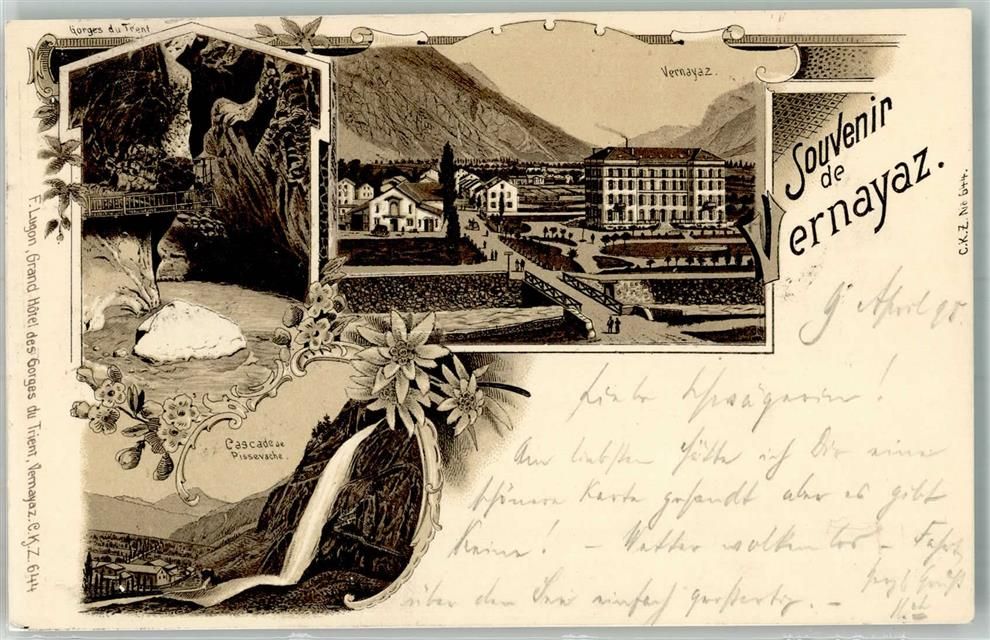 Gorges du Trent
Vernayaz.
Souvenir
de
Vernayaz.
C.K.Z. No 644.
F. Lugon, Grand Hôtel des Gorges du Trient, Vernayaz. C.K.Z. 644
Cascade de
Pissevache.
9 April 98.
Liebe Schwägerin!
Am liebsten hätte ich Dir eine
schönere Karte gesandt aber es gibt
keine! – Wetter wolkenlos – Fahrt
über den See einfach großartig. –
Herzl Gruß